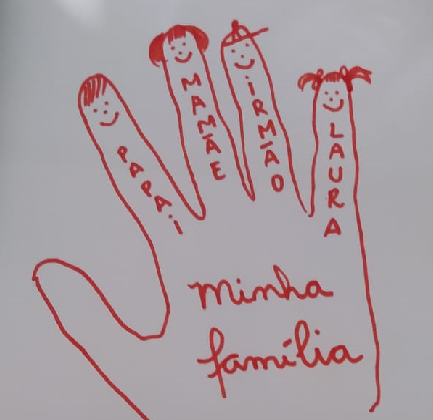 PAPAi
MAMÃE
iRMÃO
LAURA
minha
família